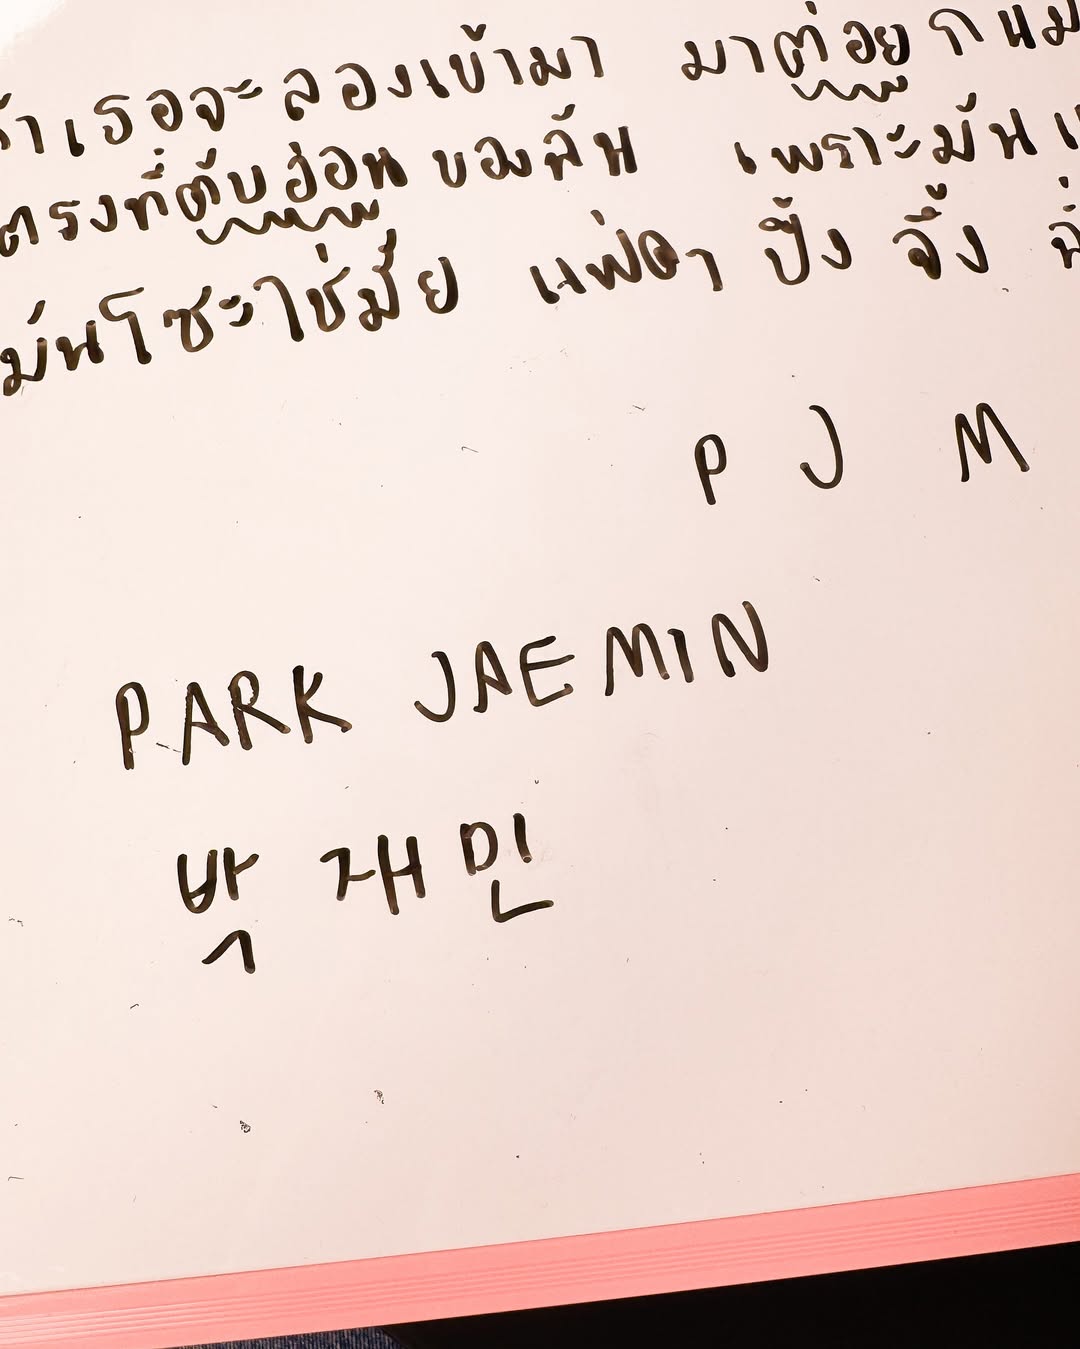 เธอจะลองเข้ามา มาต่อย
ตรงที่ตับอ่อน ของฉัน เพราะมัน
มันโซะใช่มั้ย ปึ้ง จึ้ง
P J M
PARK JAEMIN
박 재민